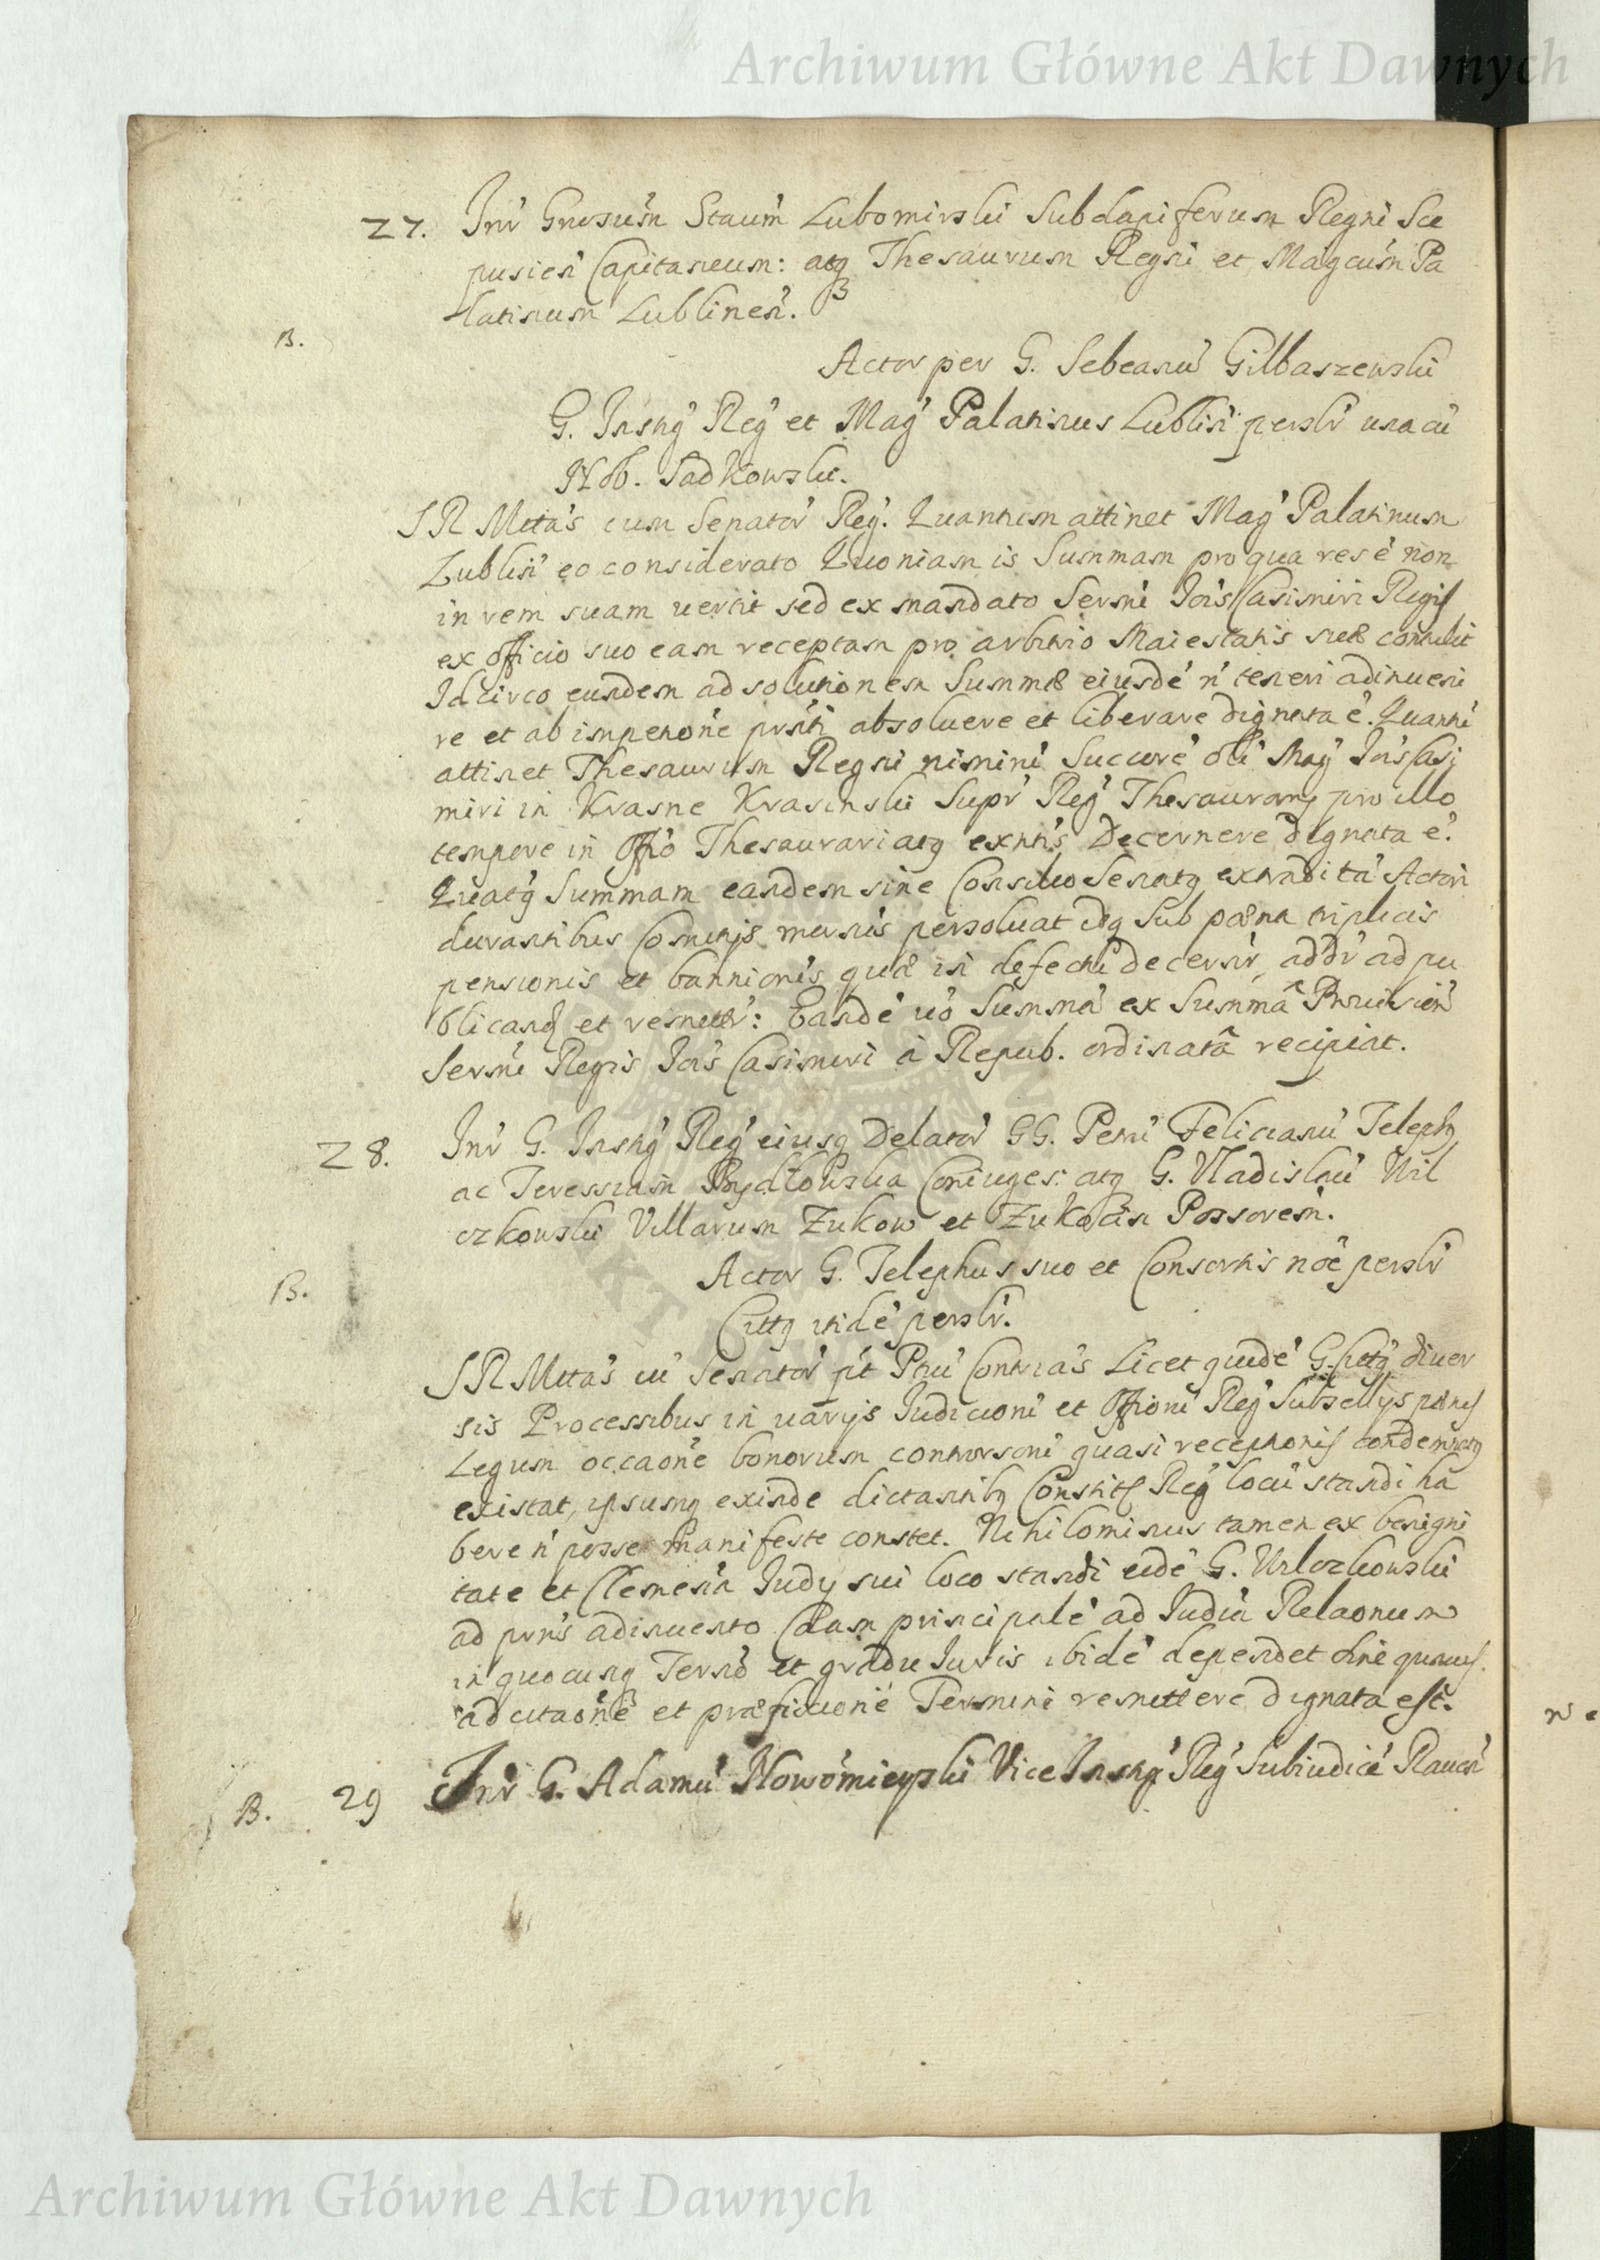 Archiwum Główne Akt Dawnych
27. Inr Gnosum Staum Lubomirski Subdapiferum Regni Sce
pusien Capitaneum: atq Thesaurum Regni et Magcum Pa
latinum Lublinen.
B.
Actor per G. Sebeanu Gilbaszewski
G. Instig Reg et Mag Palatinus Lublin perslr una cu
Nob. Sadkowski.
SR Mttas cum Senator Reg. Quantum attinet Mag Palatinum
Lublin eo considerato Quoniam is Summam pro qua res é non
in rem suam uertit sed ex mandato Sermi Jois Casimiri Regis
ex officio suo eam receptam pro arbitrio Maiestatis suæ contulit
Idcirco eundem ad solutionem Summæ eiusdé ń teneri adinueni
re et ab impetone prnti absoluere et liberare dignata é. Quantu
attinet Thesaurum Regni nimini Succore oli Mag Jois Casi
miri in Krasne Krasinski Supr Reg Thesaurarij pro illo
tempore in Offio Thesaurariatq extntis Decernere dignata é.
Quatq Summam eandem sine Consilio Senatq extradita Actori
durantibus Comitijs mensis persoluat idq sub pæna triplicis
pensionis et bannionis quæ in defectu decernir, addr ad pu
blicand et remittr: Eandé uó Summá ex Summa Prouision
Sermi Regis Jois Casimiri á Repub. ordinatá recipiat.
28. Inr G. Instig Reg eiusq Delator GG. Petru Felicianu Teleph
ac Teressiam Bydłowska Coniuges: atq G. Vladislau Wil
czkowski Villarum Zukow et Zukocin Possorem.
B.
Actor G. Telephus suo et Consortis noe perslr
Cittq itidé perslr.
SR Mttas cu Senator pt Pnu Contrias Licet quidé G. Cittq diuer
sis Processibus in uarijs Judicioni et Offioni Reg Subsellijs pænis
Legum occaone bonorum controrsoni quasi receptionis condemnatq
existat, ipsumq exinde dictantibq Constit Reg locu standi ha
bere ń posse manifeste constet. Nihilominus tamen ex benigni
tate et Clemenia Judij sui loco standi eidé G. Wilczkowski
ad prns adinuento Causam principalé ad Judiu Relaonum
in quocunq Termo et gradu Juris ibidé dependet
ad citaoné et præfixioné Termini remittere dignata est.
B. 29 Inr G. Adamu Nowomieyski Vice Instig Reg Subiudicé Rauen
Archiwum Główne Akt Dawnych